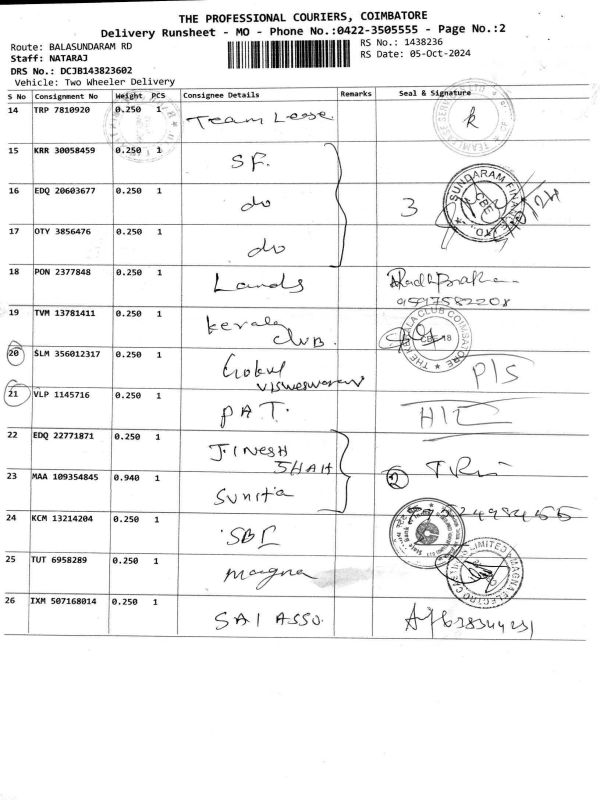 THE PROFESSIONAL COURIERS, COIMBATORE
Delivery Runsheet - MO - Phone No.:0422-3505555 - Page No.:2
Route: BALASUNDARAM RD
RS No.: 1438236
Staff: NATARAJ
RS Date: 05-Oct-2024
DRS No.: DCJB143823602
Vehicle: Two Wheeler Delivery
S No Consignment No Weight PCS Consignee Details Remarks Seal & Signature
14 TRP 7810920 0.250 1 Team Lease
15 KRR 30058459 0.250 1 SF.
16 EDQ 20603677 0.250 1 do 3 SUNDARAM FINANCE LTD CBE
17 OTY 3856476 0.250 1 do
18 PON 2377848 0.250 1 Lands
19 TVM 13781411 0.250 1 Kerala CLUB. THE KERALA CLUB COIMBATORE CBE-18
20 SLM 356012317 0.250 1 Gokul Visweswaran P/S
21 VLP 1145716 0.250 1 PAT.
22 EDQ 22771871 0.250 1 JINESH SHAH
23 MAA 109354845 0.940 1 Sunita 2
24 KCM 13214204 0.250 1 SBI State Bank of India
25 TUT 6958289 0.250 1 magna MAGNA ELECTRO CASTINGS LIMITED
26 IXM 507168014 0.250 1 SAI ASSO.